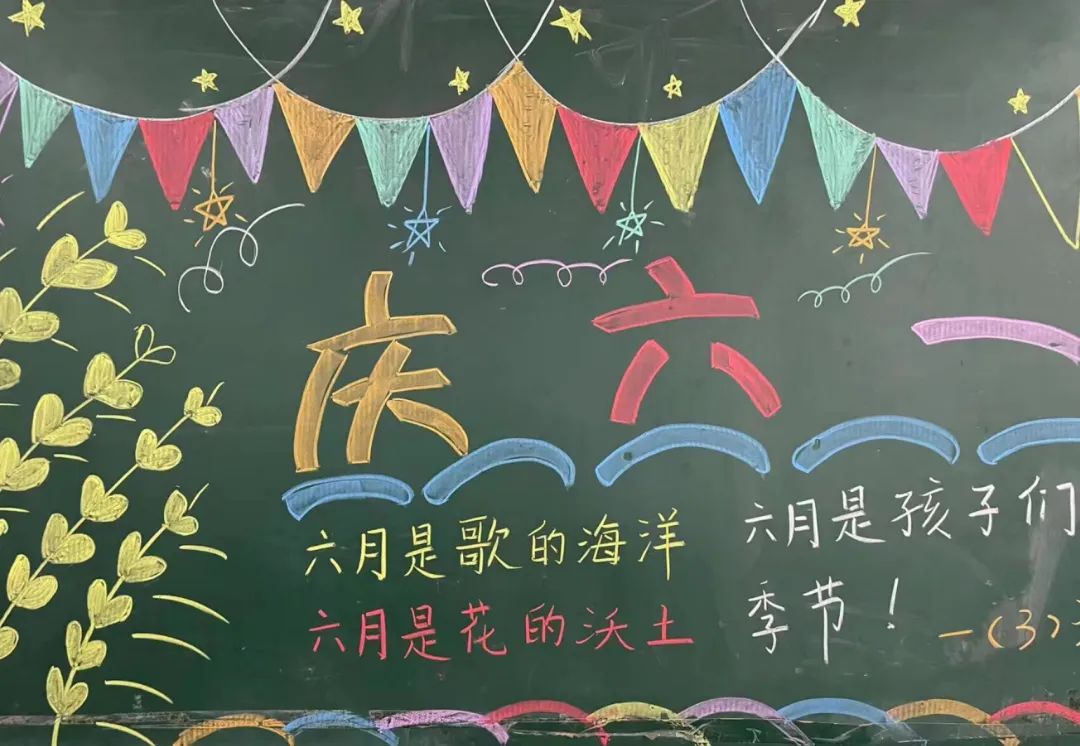 庆六一
六月是歌的海洋
六月是花的沃土
六月是孩子们
季节！
一(3)